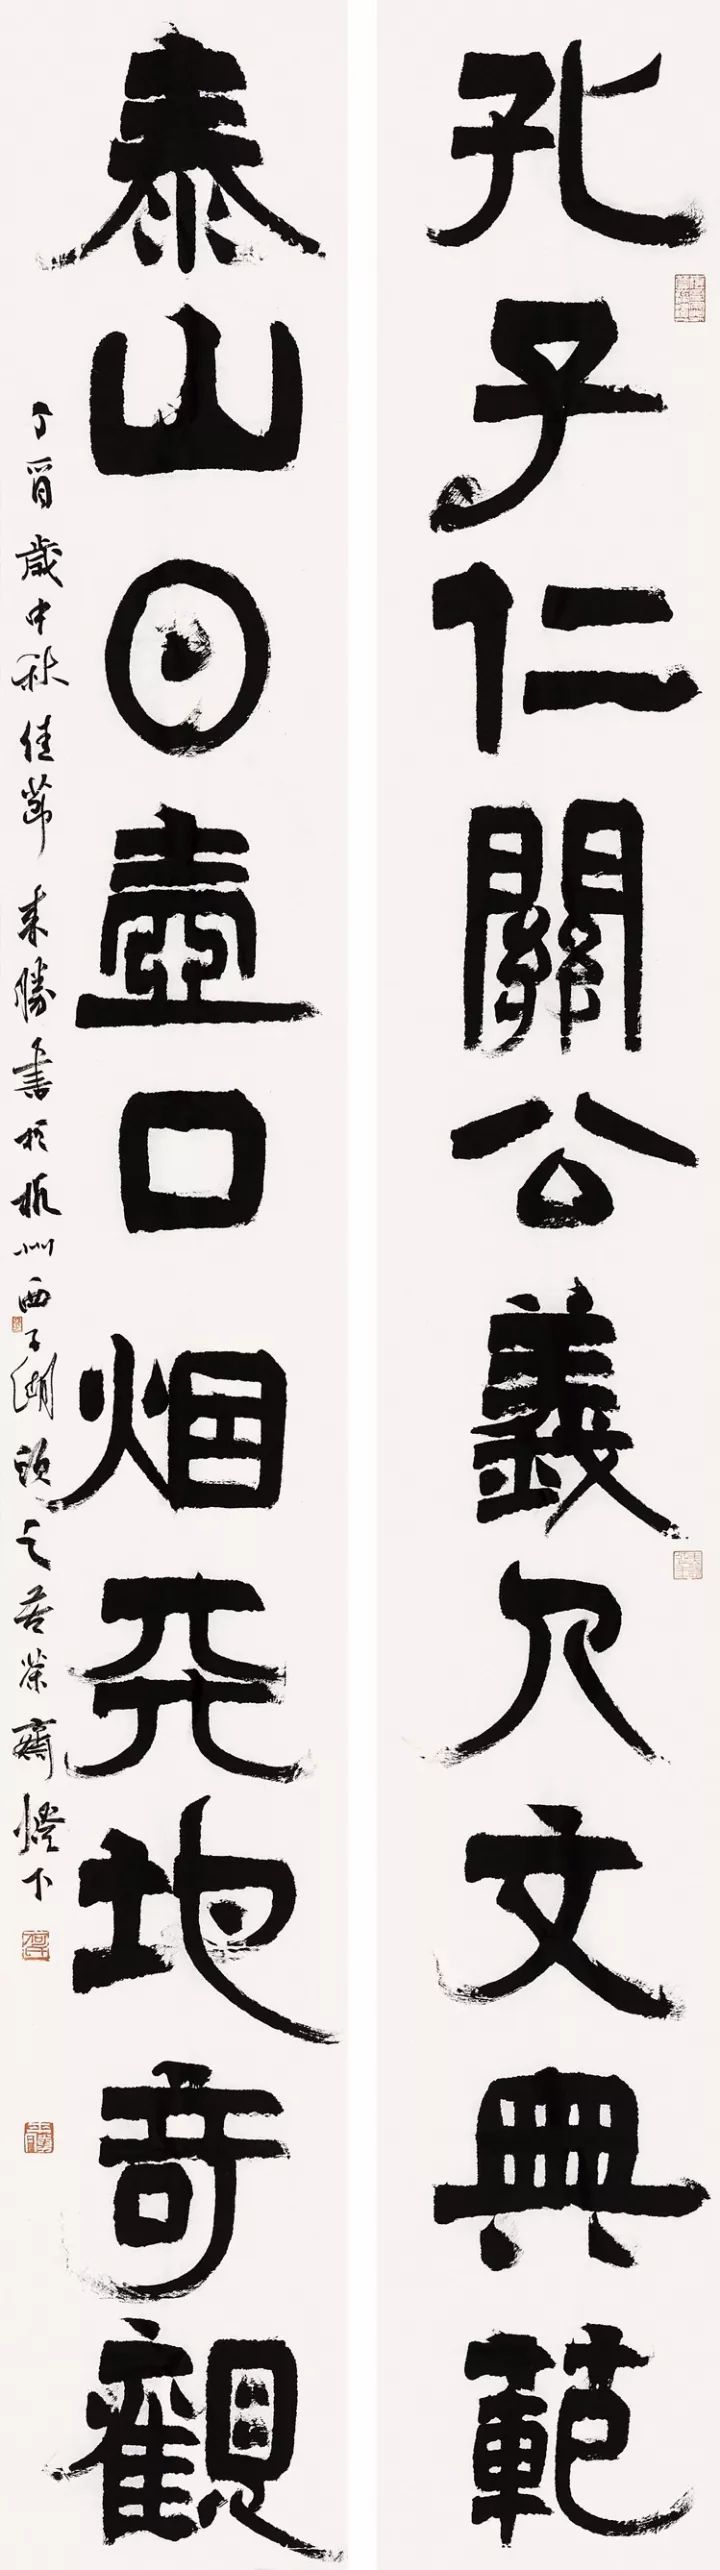 孔子仁關公義人文典範
泰山日壺口烟天地奇觀
丁酉歲中秋佳節來勝書於杭州西子湖頭之若荼齋燈下